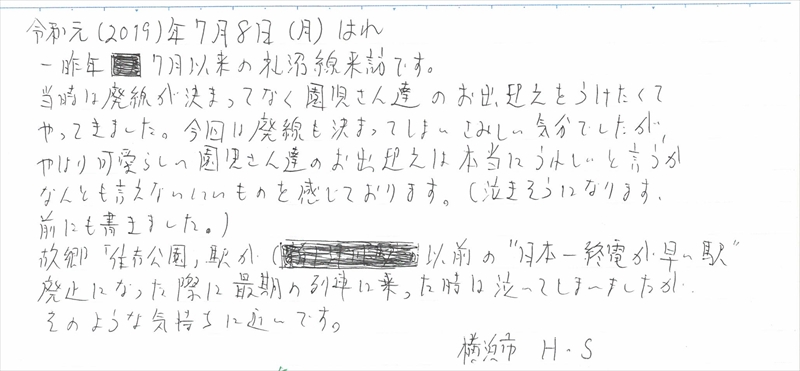 令和元(2019)年7月8日(月)はれ
一昨年 7月以来の札沼線来訪です。
当時は廃線が決まってなく園児さん達のお出迎えをうけたくて
やってきました。今回は廃線も決まってしまいさみしい気分でしたが、
やはり可愛らしい園児さん達のお出迎えは本当にうれしいと言うか
なんとも言えないいいものを感じております。(泣きそうになります、
前にも書きました。)
故郷「住吉公園」駅が( 以前の"日本一終電が早い駅"
廃止になった際に最期の列車に乗った時は泣いてしまいましたが、
そのような気持ちに近いです。
横浜市 H.S